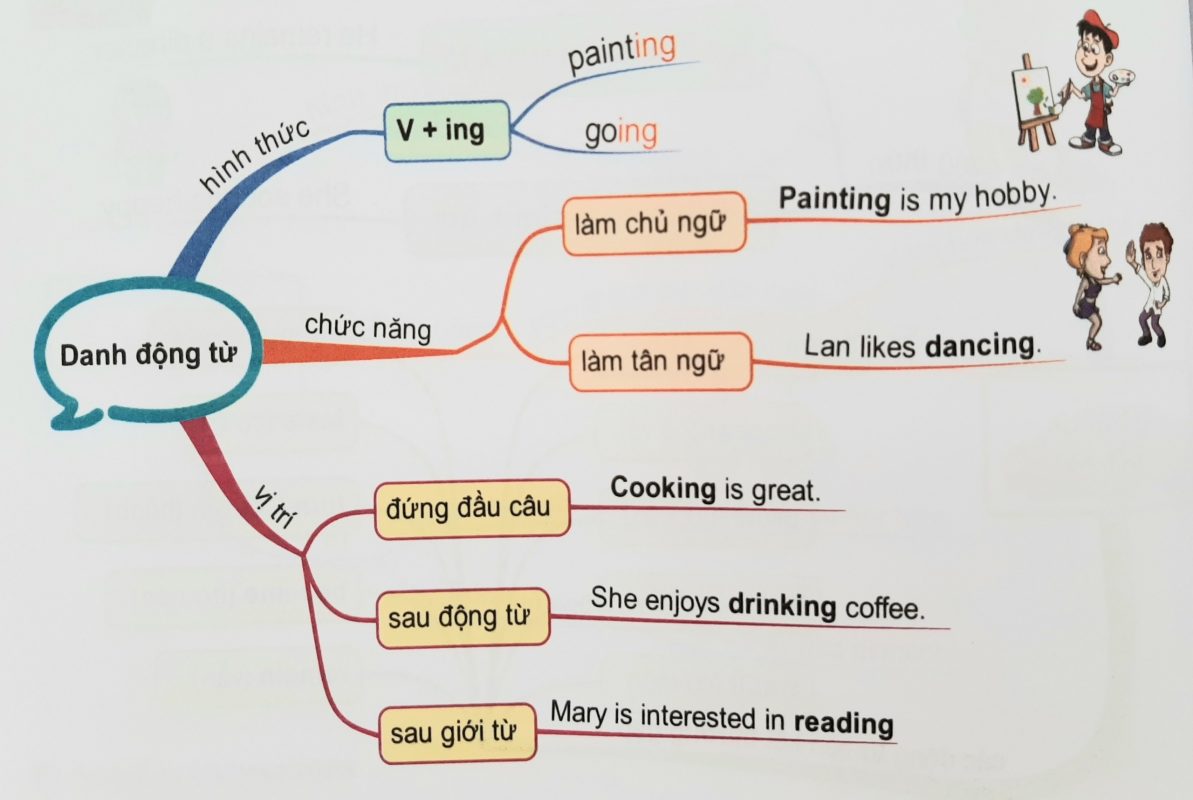 Danh động từ
hình thức
V + ing
painting
going
chức năng
làm chủ ngữ
Painting is my hobby.
làm tân ngữ
Lan likes dancing.
vị trí
đứng đầu câu
Cooking is great.
sau động từ
She enjoys drinking coffee.
sau giới từ
Mary is interested in reading